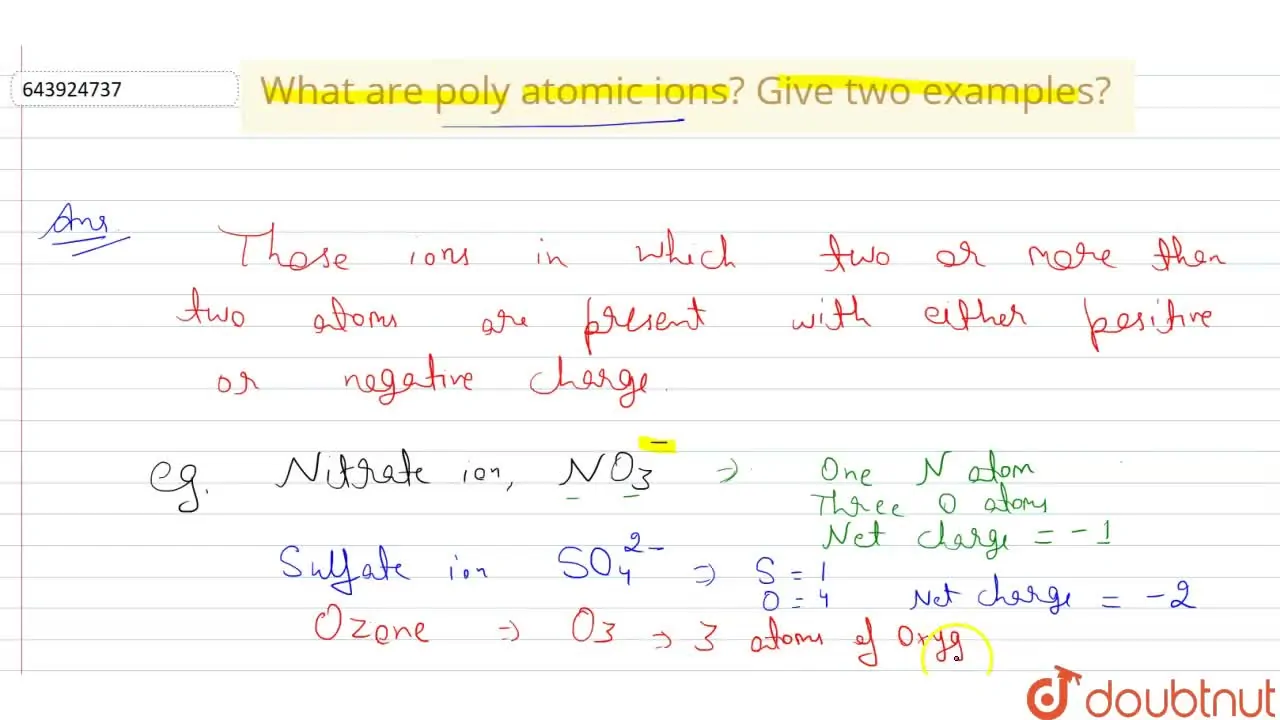 643924737
What are poly atomic ions? Give two examples?
Ans
Those ions in which two or more then
two atoms are present with either positive
or negative charge.
eg. Nitrate ion, NO₃⁻ ⇒ One N atom
Three O atoms
Net charge = -1
Sulfate ion SO₄²⁻ ⇒ S = 1
O = 4 Net charge = -2
Ozone ⇒ O₃ ⇒ 3 atoms of Oxyg
doubtnut